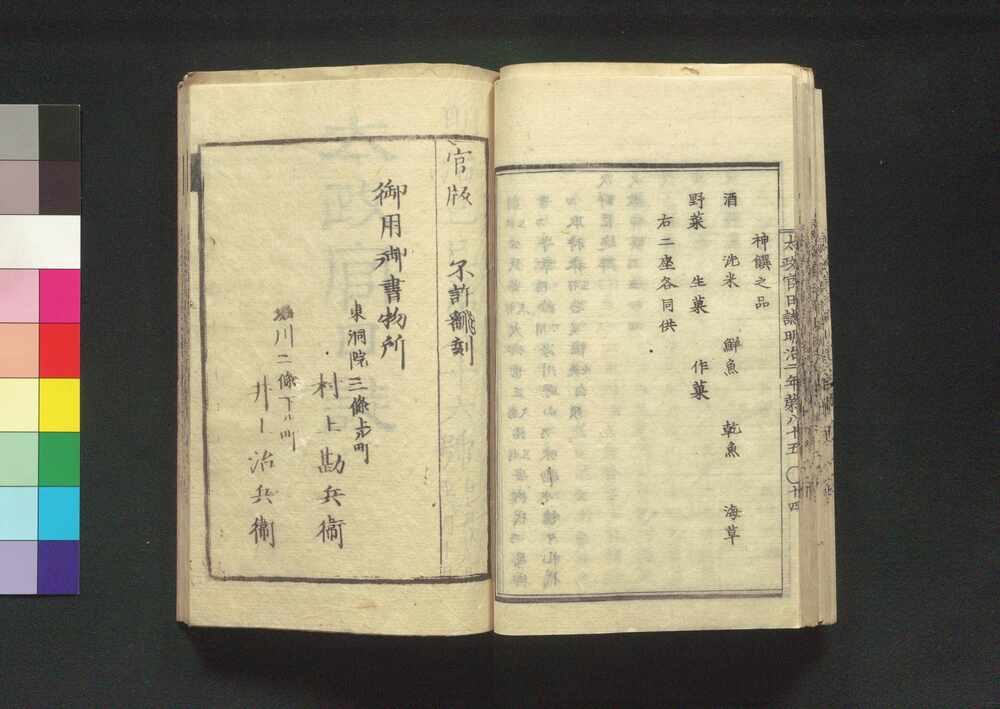 太政官日誌明治二年第八十五 〇十四
神饌之品
酒 洗米 鮮魚 乾魚 海草
野菜 生菓 作菓
右二座各同供
官版 不許翻刻
御用御書物所
東洞院三條上ル町
村上勘兵衛
堀川二條下ル町
井上治兵衛